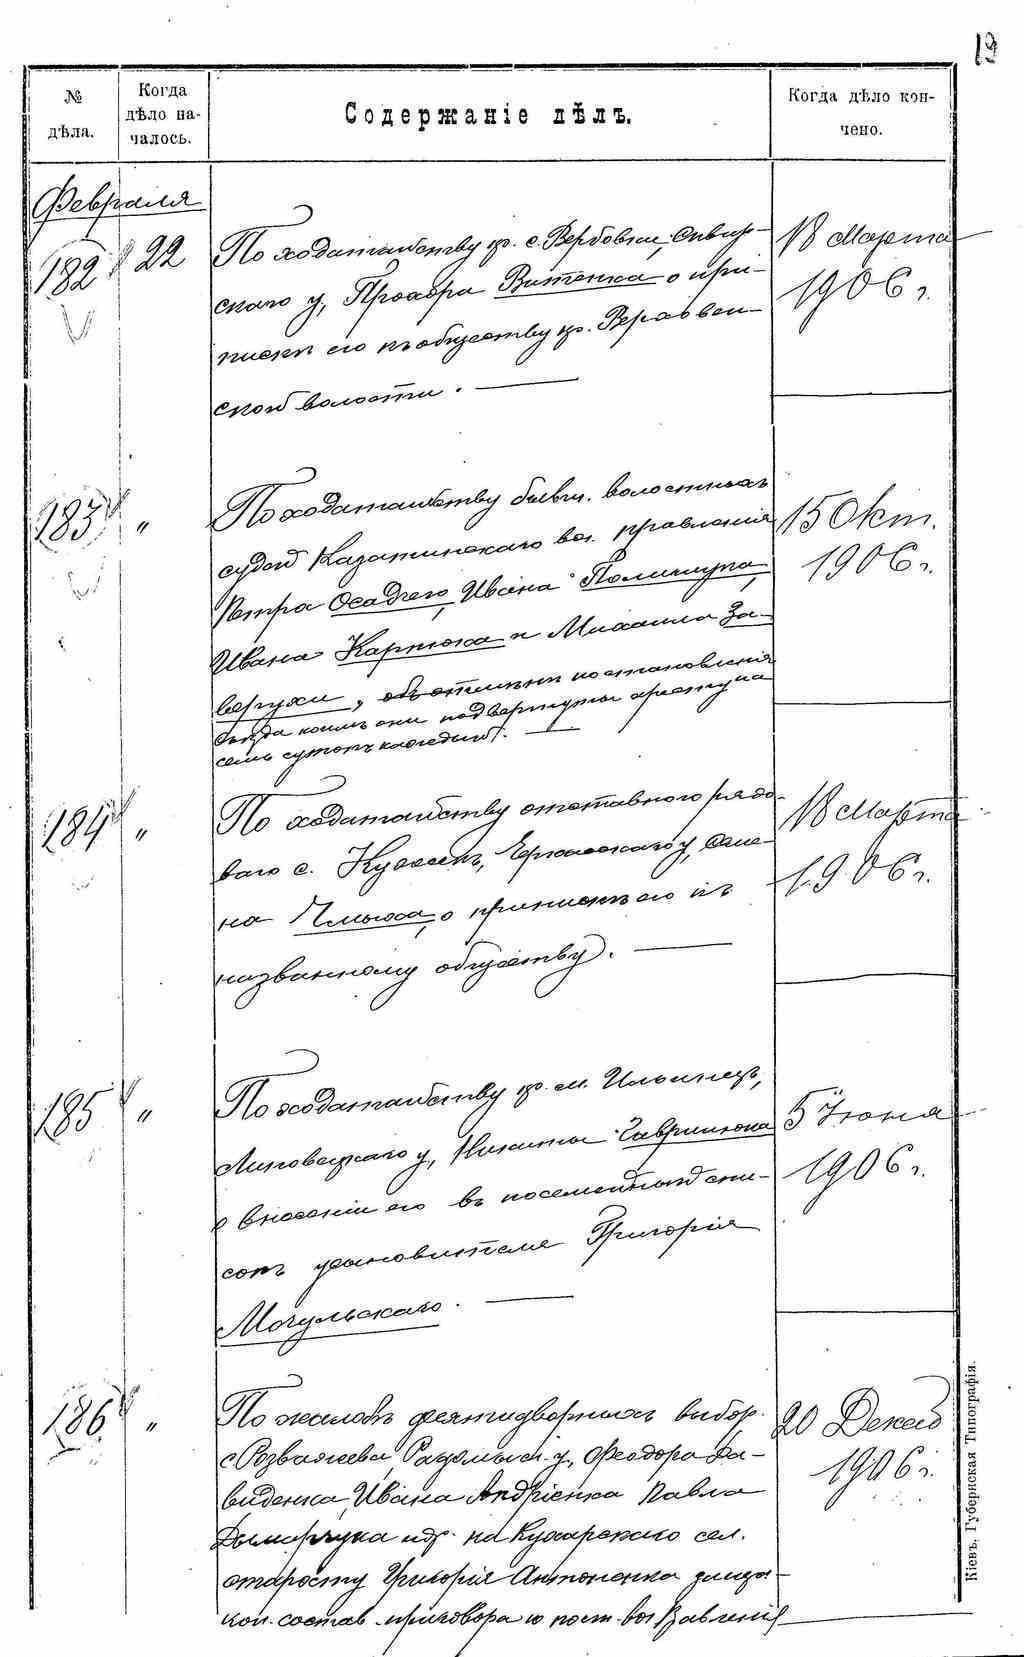 19
№ дѣла.
Когда дѣло началось.
Содержаніе дѣлъ.
Когда дѣло кончено.
Февраля
182 22 По ходатайству кр. с. Вербовки, Сквир- 18 Марта
скаго у, Прохора Витенка о при- 1906 г.
пискѣ его къ обществу кр.
ской волости.
183 " По ходатайству бывш. волостныхъ 15 Окт.
судей Казатинскаго вол. правленія 1906 г.
Петра Осадчего, Ивана Полищука,
Ивана Карпюка и Михаила За-
вергухи, объ отмѣнѣ постановленія
съѣзда коимъ они подвергнуты аресту на
семь сутокъ каждый.
184 " По ходатайству отставного рядо- 18 Марта
ваго с. у, Семе- 1906 г.
на о припискѣ его къ
названному обществу.
185 " По ходатайству кр. м. Ильинец, 5 Іюня
Липовецкаго у, Никиты Гаврилюка 1906 г.
о внесеніи его въ посемейный спи-
сокъ усыновителя Григорія
Могульскаго.
186 " По жалобѣ десятидворныхъ выбор. 20 Декаб
с Розважева, Радомысл. у., Феодора Да- 1906 г.
виденка, Ивана Андріенка Павла
Дымарчука и др. на Кухарскаго сел.
старосту Григорія Антоненка за неза-
кон. состав. приговора и пост. вол Правленія
Кіевъ. Губернская Типографія.